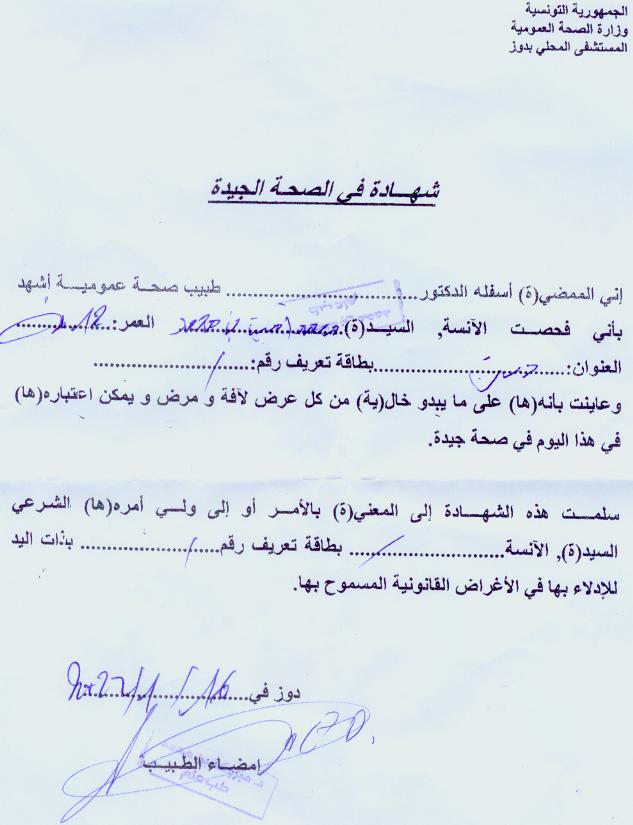 الجمهورية التونسية
وزارة الصحة العمومية
المستشفى المحلي بدوز
شهادة في الصحة الجيدة
إني الممضي(ة) أسفله الدكتور........................................ طبيب صحة عمومية أشهد
بأني فحصت الآنسة, السيد(ة)................................ العمر:....................
العنوان:........................................بطاقة تعريف رقم:................................
وعاينت بأنه(ها) على ما يبدو خال(ية) من كل عرض لآفة و مرض و يمكن اعتباره(ها)
في هذا اليوم في صحة جيدة.
سلمت هذه الشهادة إلى المعني(ة) بالأمر أو إلى ولي أمره(ها) الشرعي
السيد(ة), الآنسة............................ بطاقة تعريف رقم............................ بذات اليد
للإدلاء بها في الأغراض القانونية المسموح بها.
دوز في................................
امضاء الطبيب
طب عام